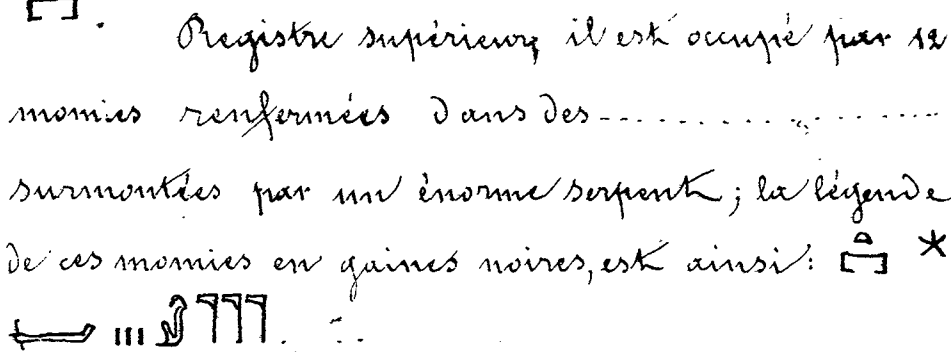 . Registre supérieur, il est occupé par 12
momies renfermées dans des....................
surmontées par un énorme serpent; la légende
de ces momies en gaines noires, est ainsi: